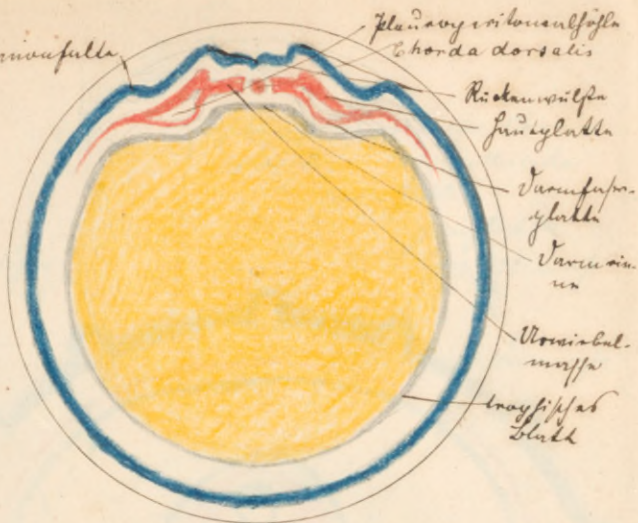 Pleuroperitonealhöhle
Chorda dorsalis
mnionfalte
Rückenwülste
Hautplatte
Darmfaser-
platte
Darmrin-
ne
Urwirbel-
masse
trophisches
Blatt